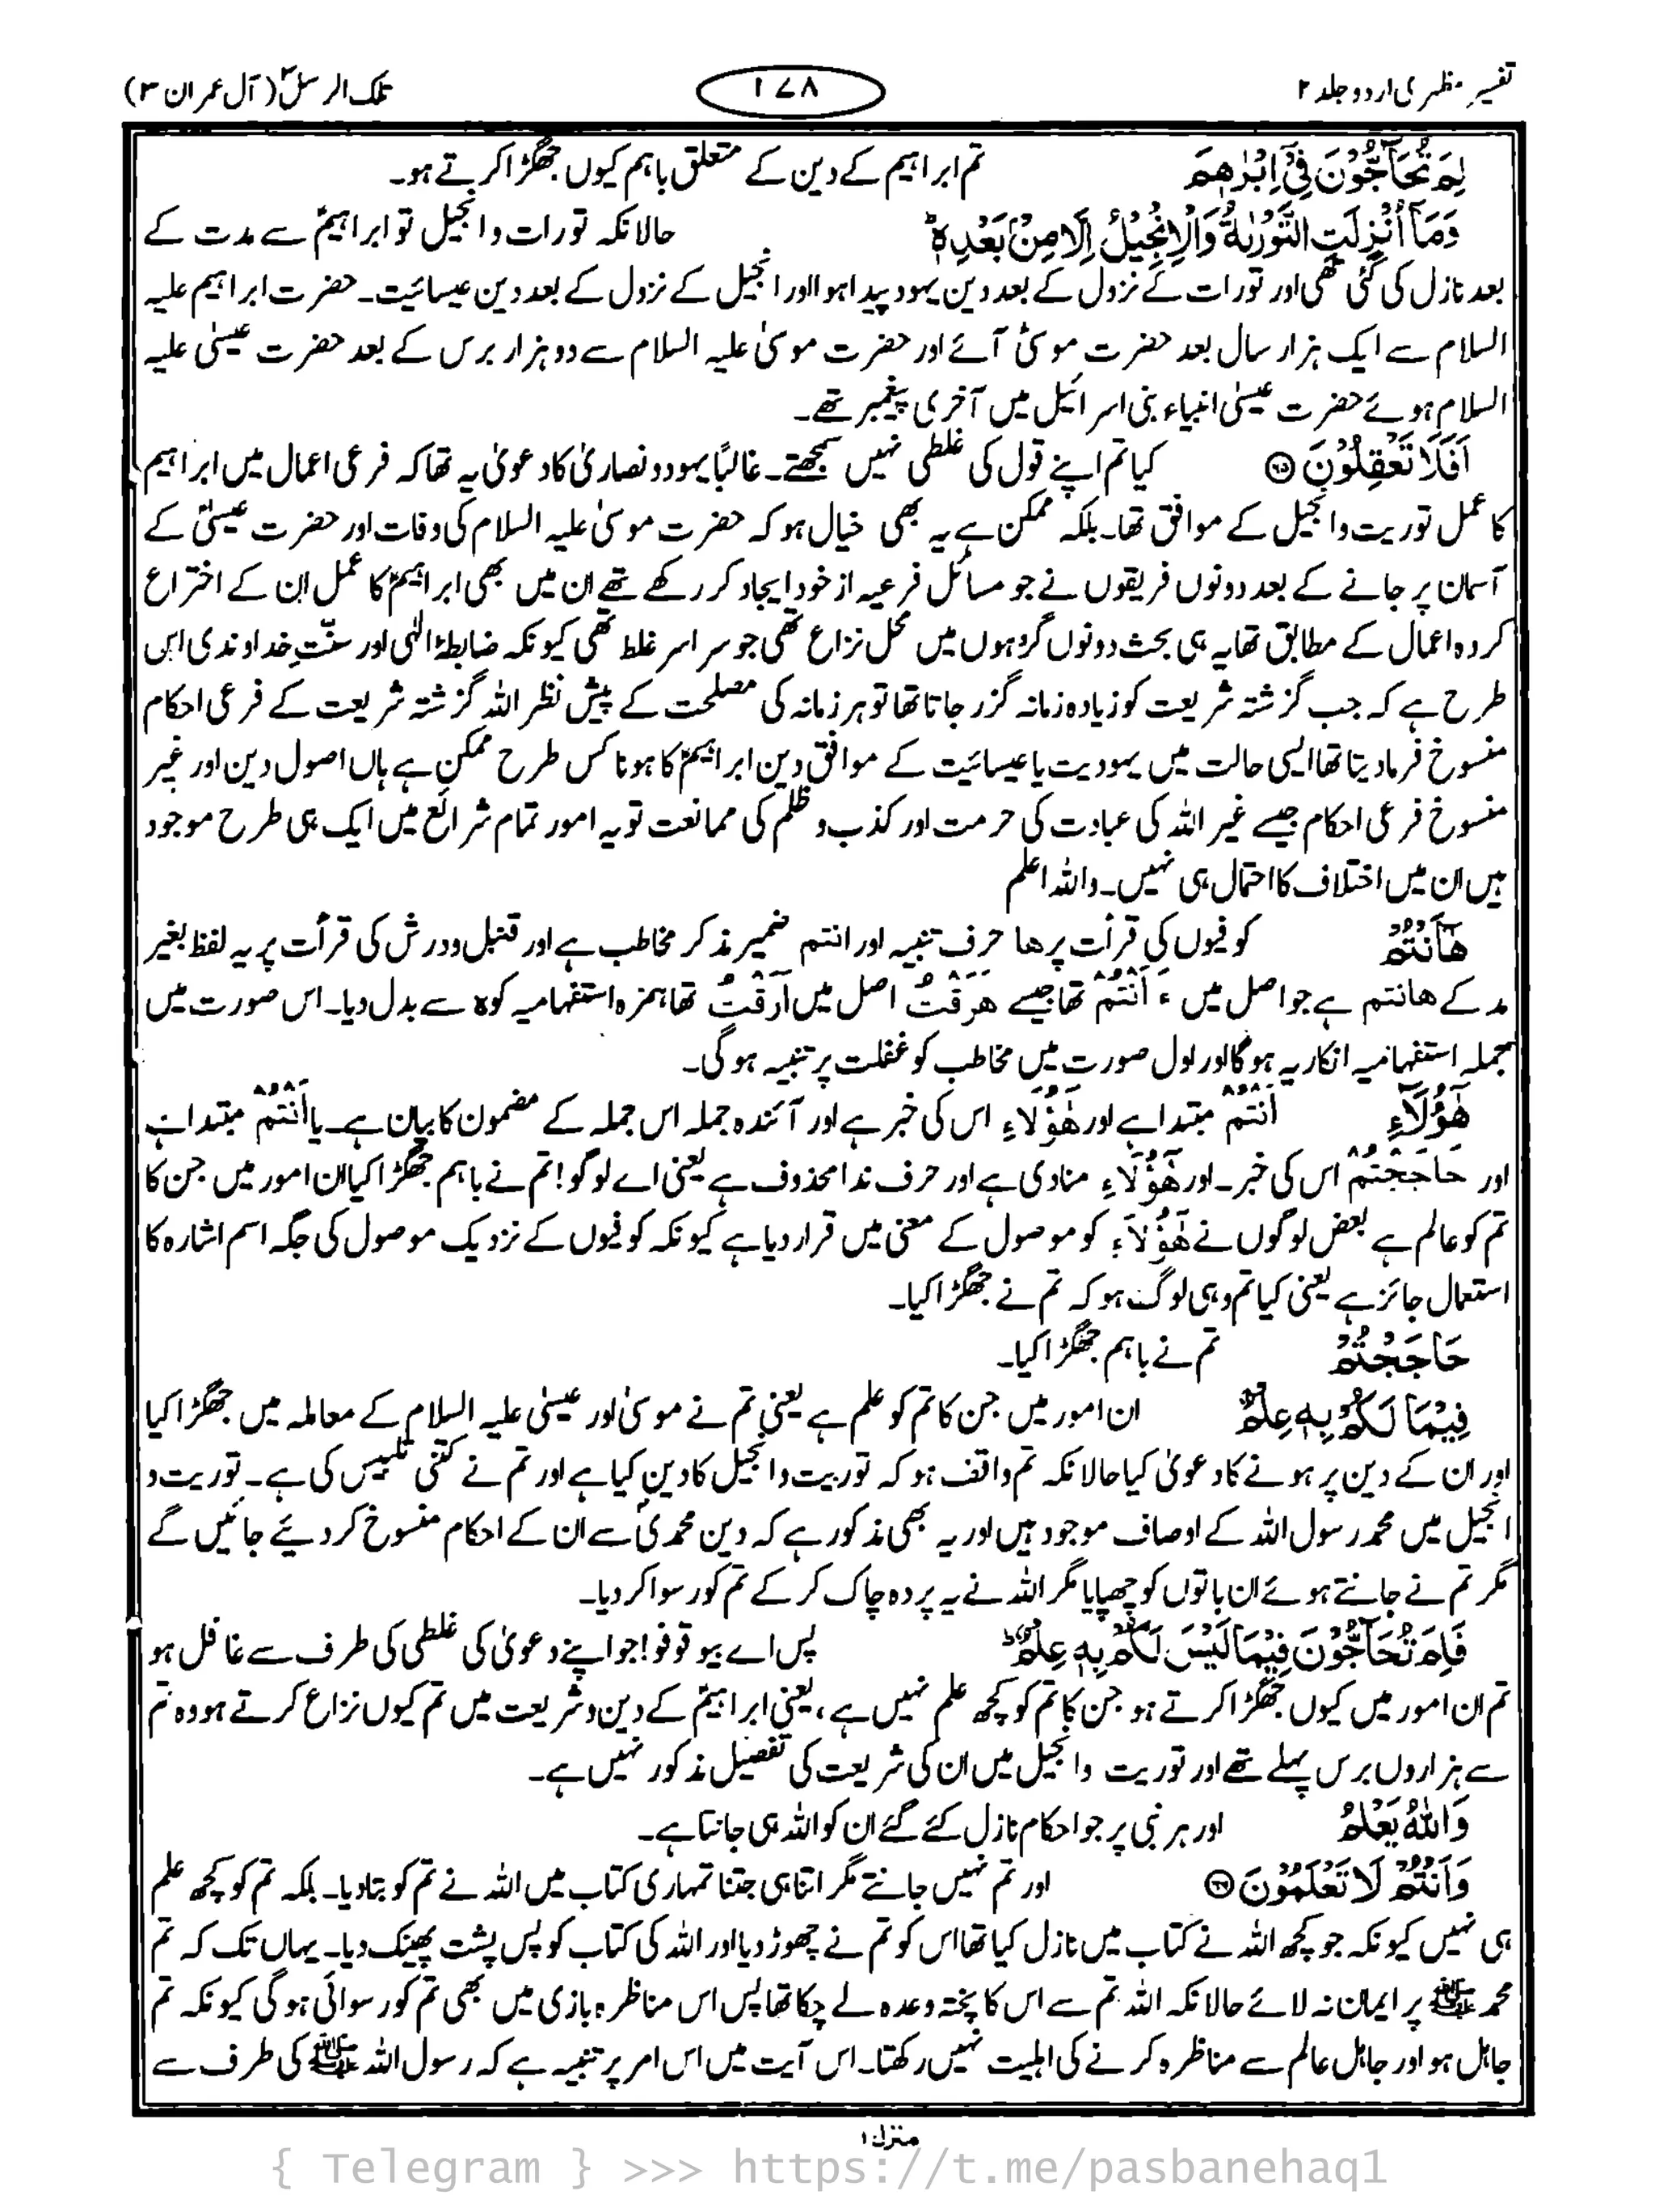 تفسیر مظہری اردو جلد ۲
۱۷۸
تلک الرسل ۳ (آل عمران ۳)
لِمَ تُحَآجُّوْنَ فِیْۤ اِبْرٰهِیْمَ تم ابراہیم کے دین کے متعلق باہم کیوں جھگڑا کرتے ہو۔
وَمَاۤ اُنْزِلَتِ التَّوْرٰىةُ وَالْاِنْجِیْلُ اِلَّا مِنْۢ بَعْدِهٖ ؕ حالانکہ تورات و انجیل تو ابراہیمؑ سے مدت کے
بعد نازل کی گئی تھی اور تورات کے نزول کے بعد دین یہود پیدا ہوا اور انجیل کے نزول کے بعد دین عیسائیت۔ حضرت ابراہیم علیہ
السلام سے ایک ہزار سال بعد حضرت موسیٰؑ آئے اور حضرت موسیٰ علیہ السلام سے دو ہزار برس کے بعد حضرت عیسیٰ علیہ
السلام ہوئے حضرت عیسیٰ انبیاء بنی اسرائیل میں آخری پیغمبر تھے۔
اَفَلَا تَعْقِلُوْنَ ۝۶۵ کیا تم اپنے قول کی غلطی نہیں سمجھتے۔ غالبًا یہود و نصاریٰ کا دعویٰ یہ تھا کہ فرعی اعمال میں ابراہیم
کا عمل توریت و انجیل کے موافق تھا۔ بلکہ ممکن ہے یہ بھی خیال ہو کہ حضرت موسیٰ علیہ السلام کی وفات اور حضرت عیسیٰؑ کے
آسمان پر جانے کے بعد دونوں فریقوں نے جو مسائل فرعیہ از خود ایجاد کر رکھے تھے ان میں بھی ابراہیمؑ کا عمل ان کے اختراع
کردہ اعمال کے مطابق تھا یہ ہی بحث دونوں گروہوں میں محل نزاع تھی جو سراسر غلط تھی کیونکہ ضابطۂ الٰہی اور سنّتِ خداوندی اس
طرح ہے کہ جب گزشتہ شریعت کو زیادہ زمانہ گزر جاتا تھا تو ہر زمانہ کی مصلحت کے پیش نظر اللہ گزشتہ شریعت کے فرعی احکام
منسوخ فرما دیتا تھا ایسی حالت میں یہودیت یا عیسائیت کے موافق دین ابراہیمؑ کا ہونا کس طرح ممکن ہے ہاں اصول دین اور غیر
منسوخ فرعی احکام جیسے غیر اللہ کی عبادت کی حرمت اور کذب و ظلم کی ممانعت تو یہ امور تمام شرائع میں ایک ہی طرح موجود
ہیں ان میں اختلاف کا احتمال ہی نہیں۔ واللہ اعلم
هٰۤاَنْتُمْ کوفیوں کی قرأت پر ھا حرف تنبیہ اور انتم ضمیر مذکر مخاطب ہے اور قنبل و ورش کی قرأت پر یہ لفظ بغیر
مد کے ھانتم ہے جو اصل میں ءَ اَنْتُمْ تھا جیسے هَرَقْتُ اصل میں اَرَقْتُ تھا ہمزہ استفہامیہ کو ہ سے بدل دیا۔ اس صورت میں
جملہ استفہامیہ انکاریہ ہوگا اور اول صورت میں مخاطب کو غفلت پر تنبیہ ہوگی۔
هٰۤؤُلَآءِ اَنْتُمْ مبتدا ہے اور هٰۤؤُلَآءِ اس کی خبر ہے اور آئندہ جملہ اس جملہ کے مضمون کا بیان ہے۔ یا اَنْتُمْ مبتدا ہے
اور حَاجَجْتُمْ اس کی خبر۔ اور هٰۤؤُلَآءِ منادی ہے اور حرف ندا محذوف ہے یعنی اے لوگو! تم نے باہم جھگڑا کیا ان امور میں جن کا
تم کو عالم ہے بعض لوگوں نے هٰۤؤُلَآءِ کو موصول کے معنی میں قرار دیا ہے کیونکہ کوفیوں کے نزدیک موصول کی جگہ اسم اشارہ کا
استعمال جائز ہے یعنی کیا تم وہی لوگ ہو کہ تم نے جھگڑا کیا۔
حَاجَجْتُمْ تم نے باہم جھگڑا کیا۔
فِیْمَا لَكُمْ بِهٖ عِلْمٌ ان امور میں جن کا تم کو علم ہے یعنی تم نے موسیٰ اور عیسیٰ علیہ السلام کے معاملہ میں جھگڑا کیا
اور ان کے دین پر ہونے کا دعویٰ کیا حالانکہ تم واقف ہو کہ توریت و انجیل کا دین کیا ہے اور تم نے کتنی تلبیس کی ہے۔ توریت و
انجیل میں محمد رسول اللہ کے اوصاف موجود ہیں اور یہ بھی مذکور ہے کہ دین محمدیؐ سے ان کے احکام منسوخ کر دیئے جائیں گے
مگر تم نے جانتے ہوئے ان باتوں کو چھپایا مگر اللہ نے یہ پردہ چاک کر کے تم کو رسوا کر دیا۔
فَلِمَ تُحَآجُّوْنَ فِیْمَا لَیْسَ لَكُمْ بِهٖ عِلْمٌ ؕ پس اے بیوقوفو! جو اپنے دعویٰ کی غلطی کی طرف سے غافل ہو
تم ان امور میں کیوں جھگڑا کرتے ہو جن کا تم کو کچھ علم نہیں ہے، یعنی ابراہیمؑ کے دین و شریعت میں تم کیوں نزاع کرتے ہو وہ تم
سے ہزاروں برس پہلے تھے اور توریت و انجیل میں ان کی شریعت کی تفصیل مذکور نہیں ہے۔
وَاللّٰهُ یَعْلَمُ اور ہر نبی پر جو احکام نازل کئے گئے ان کو اللہ ہی جانتا ہے۔
وَاَنْتُمْ لَا تَعْلَمُوْنَ ۝۶۶ اور تم نہیں جانتے مگر اتنا ہی جتنا تمہاری کتاب میں اللہ نے تم کو بتا دیا۔ بلکہ تم کو کچھ علم
ہی نہیں کیونکہ جو کچھ اللہ نے کتاب میں نازل کیا تھا اس کو تم نے چھوڑ دیا اور اللہ کی کتاب کو پس پشت پھینک دیا۔ یہاں تک کہ تم
محمد ﷺ پر ایمان نہ لائے حالانکہ اللہ تم سے اس کا پختہ وعدہ لے چکا تھا پس اس مناظرہ بازی میں بھی تم کو رسوائی ہوگی کیونکہ تم
جاہل ہو اور جاہل عالم سے مناظرہ کرنے کی اہلیت نہیں رکھتا۔ اس آیت میں اس امر پر تنبیہ ہے کہ رسول اللہ ﷺ کی طرف سے
منزل ۱
{ Telegram } >>> https://t.me/pasbanehaq1